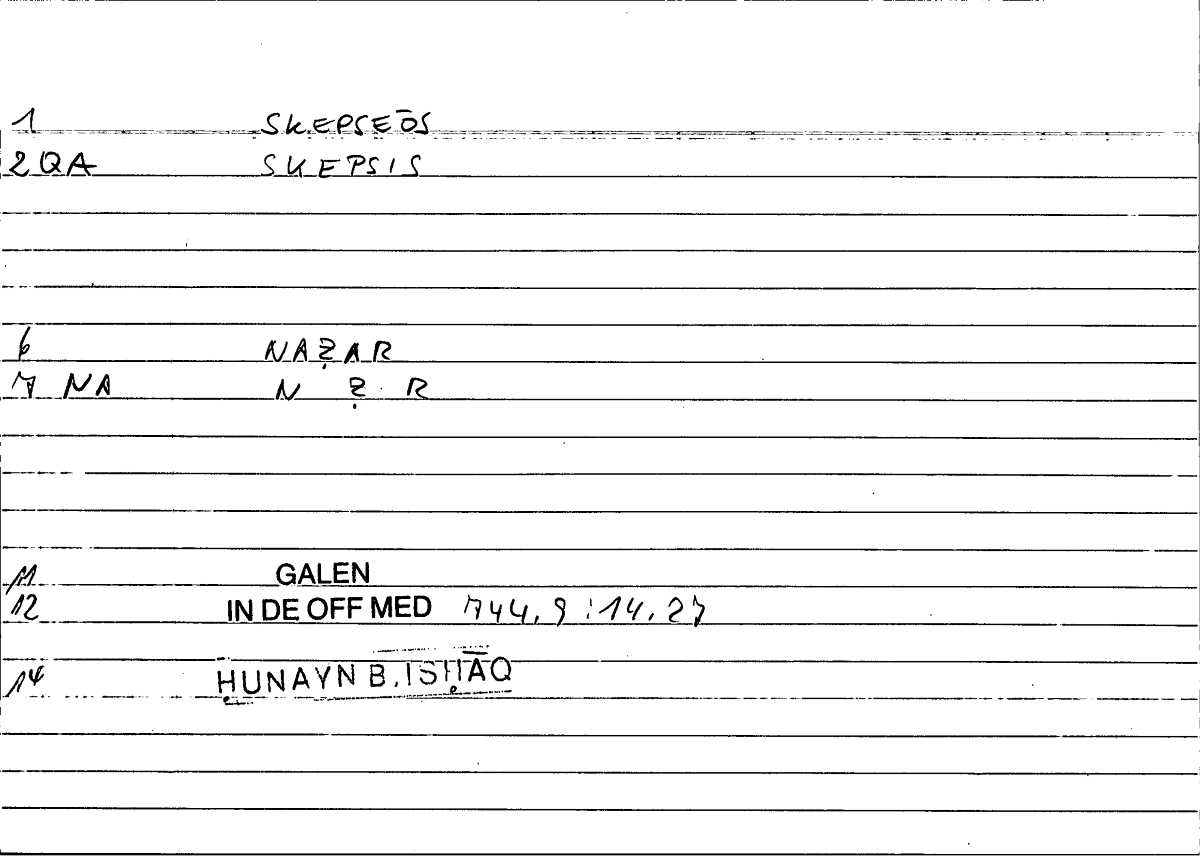 1 SKEPSEŌS
2 QA SKEPSIS
6 NAẒAR
7 NA N Ẓ R
11 GALEN
12 IN DE OFF MED 744,9:14,27
14 ḤUNAYN B. ISḤĀQ